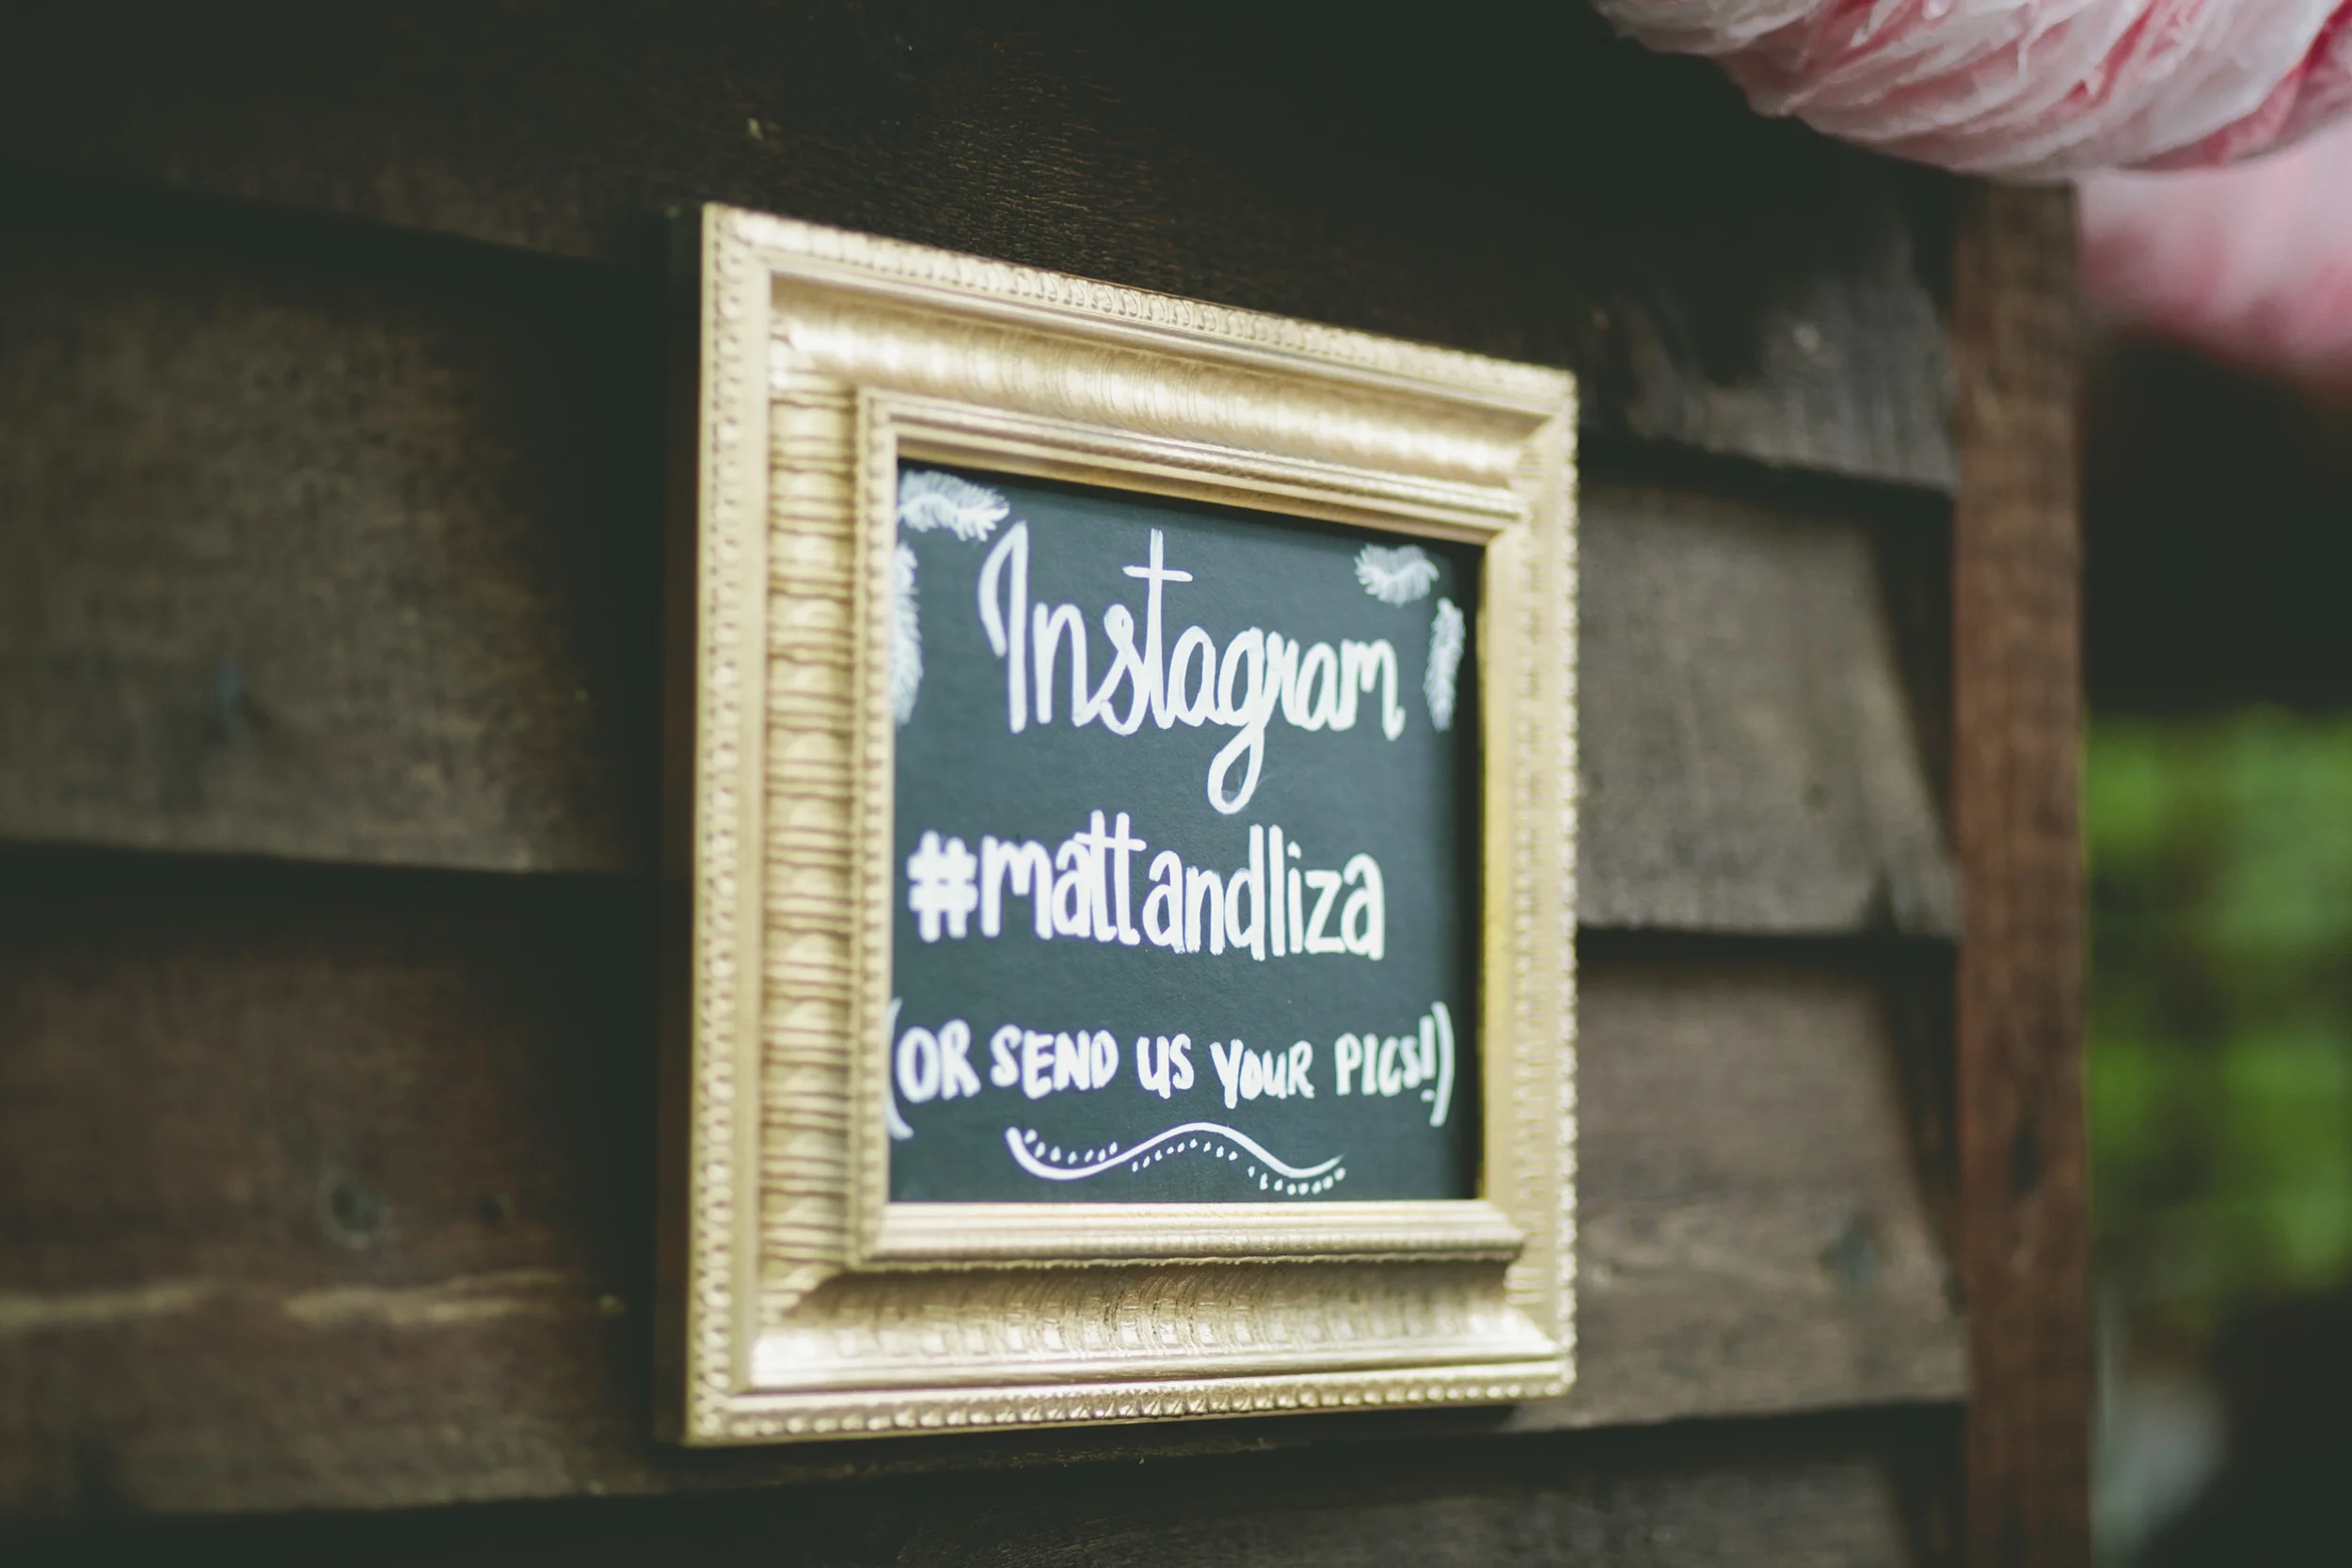 Instagram
#mattandliza
(OR SEND US YOUR PICS!)